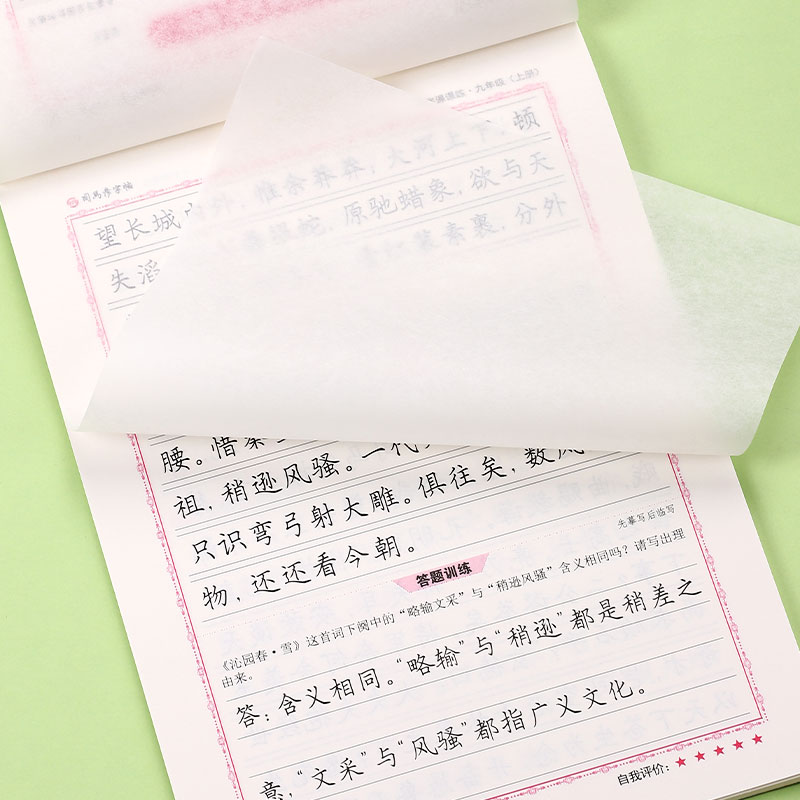 司马彦字帖
九年级（上册）
望长城 外，惟余莽莽；大河上下，顿
失滔 银蛇，原驰蜡象，欲与天
装素裹，分外
腰。惜秦
祖，稍逊风骚。一代
只识弯弓射大雕。俱往矣，数风
物，还还看今朝。
先摹写后临写
答题训练
《沁园春·雪》这首词下阕中的“略输文采”与“稍逊风骚”含义相同吗？请写出理
由来。
答：含义相同。“略输”与“稍逊”都是稍差之
意，“文采”与“风骚”都指广义文化。
自我评价：★★★★★